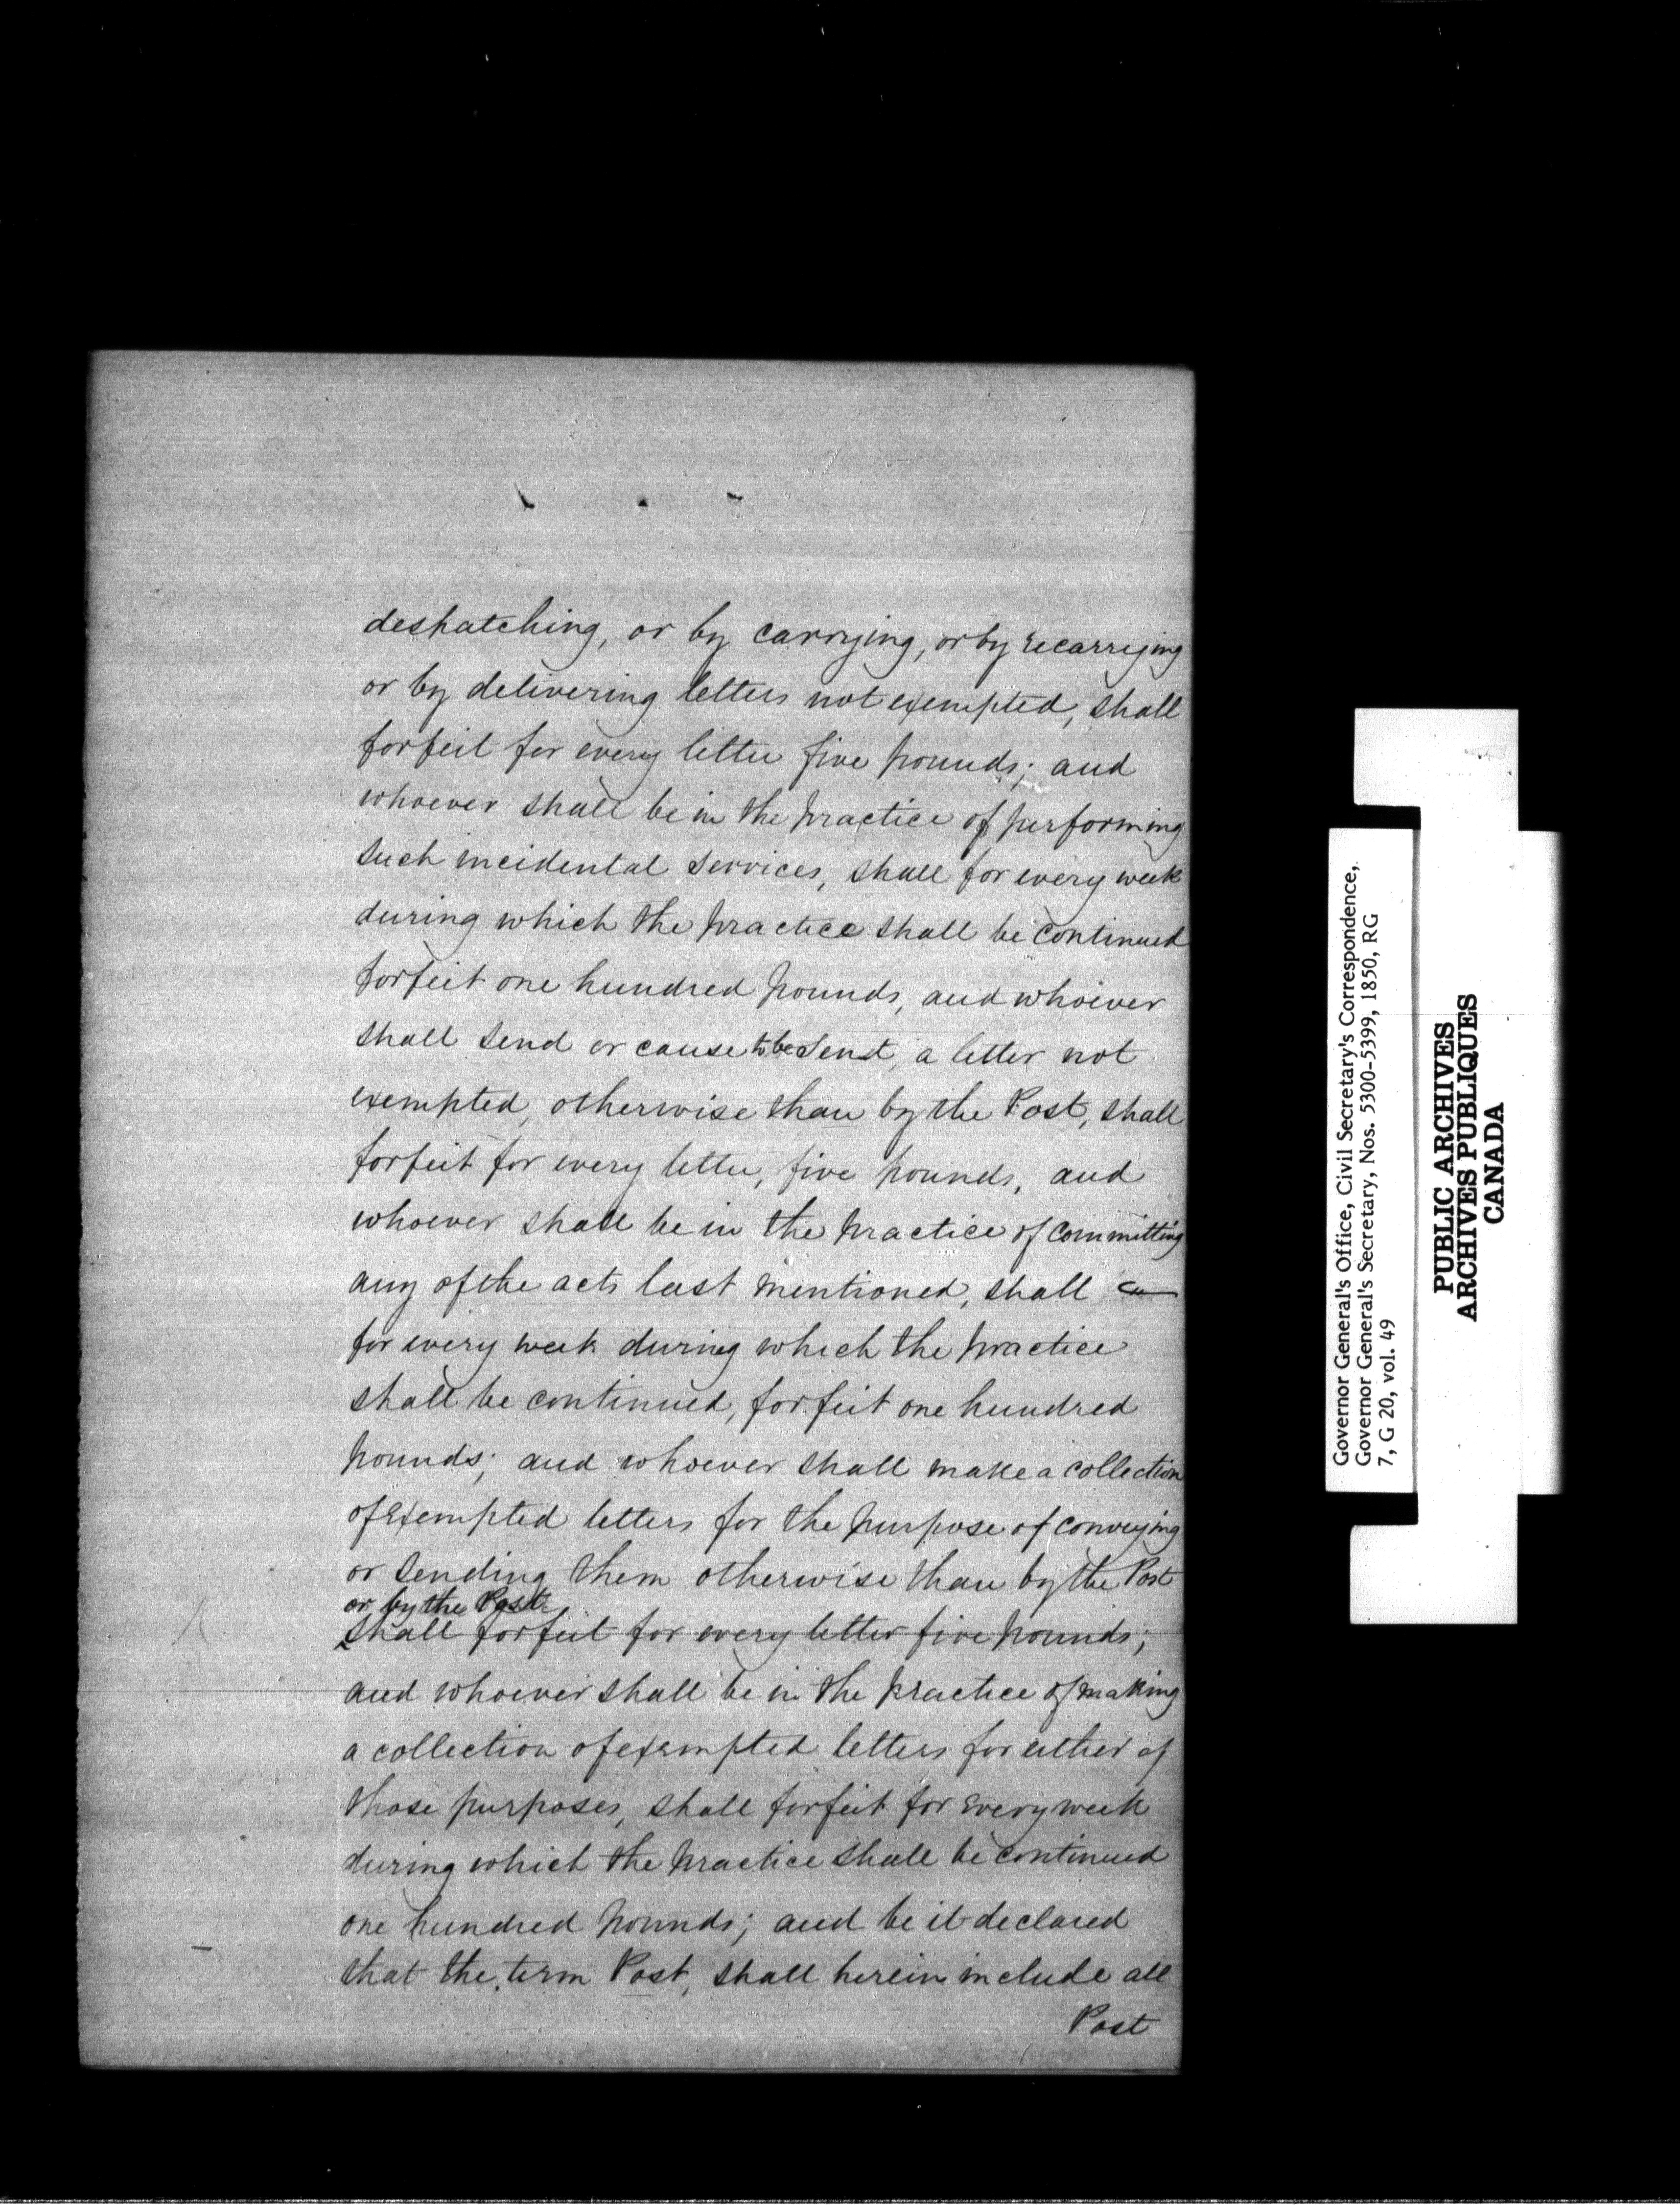 despatching, or by carrying, or by recarrying
or by delivering letters not exempted, shall
forfeit for every letter five pounds; and
whoever shall be in the practice of performing
such incidental services, shall for every week
during which the practice shall be continued
forfeit one hundred pounds, and whoever
shall send or cause to be sent, a letter not
exempted, otherwise than by the Post, shall
forfeit for every letter, five pounds, and
whoever shall be in the practice of committing
any of the acts last mentioned, shall
for every week during which the practice
shall be continued, forfeit one hundred
pounds; and whoever shall make a collection
of exempted letters for the purpose of conveying
or sending them otherwise than by the Post
or by the Post
shall forfeit for every letter five pounds;
and whoever shall be in the practice of making
a collection of exempted letters for either of
those purposes, shall forfeit for every week
during which the practice shall be continued
one hundred pounds; and be it declared
that the term Post, shall herein include all
Post
Governor General's Office, Civil Secretary's Correspondence,
Governor General's Secretary, Nos. 5300-5399, 1850, RG
7, G 20, vol. 49
PUBLIC ARCHIVES
ARCHIVES PUBLIQUES
CANADA